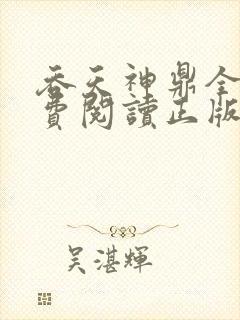 吞天神鼎全
費閱讀正版
吴湛輝